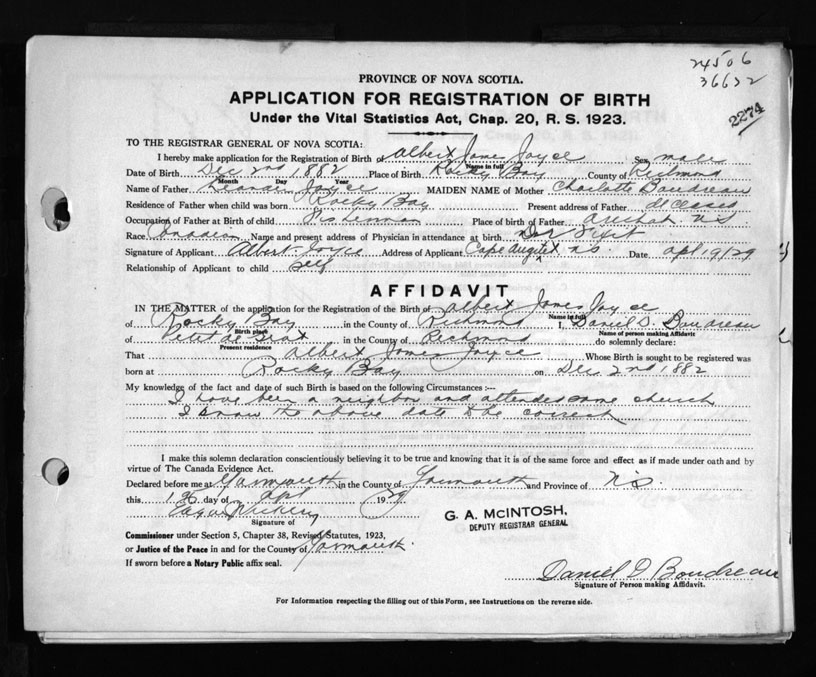 24506
36622
2274
PROVINCE OF NOVA SCOTIA.
APPLICATION FOR REGISTRATION OF BIRTH
Under the Vital Statistics Act, Chap. 20, R. S. 1923.
TO THE REGISTRAR GENERAL OF NOVA SCOTIA:
I hereby make application for the Registration of Birth of Albert James Joyce Sex male
Name in full
Date of Birth Dec 2nd 1882 Place of Birth Rocky Bay County of Richmond
Month Day Year
Name of Father Joyce MAIDEN NAME of Mother Charlotte Boudreau
Residence of Father when child was born Rocky Bay Present address of Father deceased
Occupation of Father at Birth of child Fisherman Place of birth of Father Arichat N S
Race Canadian Name and present address of Physician in attendance at birth
Signature of Applicant Albert Joyce Address of Applicant Cape Auguet N.S. Date Apl 19/29
Relationship of Applicant to child Self
AFFIDAVIT
IN THE MATTER of the application for the Registration of the Birth of Albert James Joyce
Name in full
of Rocky Bay in the County of Richmond I, Daniel D. Boudreau
Birth place Name of person making Affidavit
of Petit de Grat in the County of Richmond do solemnly declare:
Present residence
That Albert James Joyce Whose Birth is sought to be registered was
born at Rocky Bay on Dec 2nd 1882
My knowledge of the fact and date of such Birth is based on the following Circumstances :—
I have been a neighbor and attended same church
I know the above date to be correct
I make this solemn declaration conscientiously believing it to be true and knowing that it is of the same force and effect as if made under oath and by
virtue of The Canada Evidence Act.
Declared before me at Yarmouth in the County of Yarmouth and Province of N.S.
this 19 day of Apl 1929
G. A. McINTOSH,
DEPUTY REGISTRAR GENERAL
Signature of
Commissioner under Section 5, Chapter 38, Revised Statutes, 1923,
or Justice of the Peace in and for the County of Yarmouth.
If sworn before a Notary Public affix seal.
Daniel D Boudreau
Signature of Person making Affidavit.
For Information respecting the filling out of this Form, see Instructions on the reverse side.